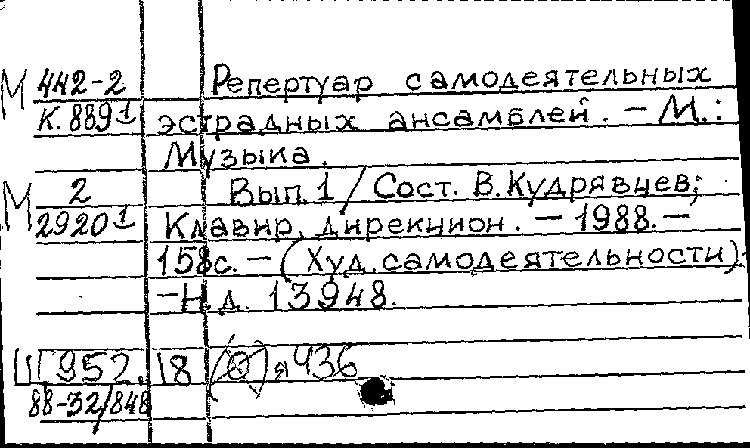 М 442-2 Репертуар самодеятельных
К. 889-1 эстрадных ансамблей. – М.:
Музыка.
М 2 Вып. 1 / Сост. В. Кудрявцев;
2920-1 Клавир, дирекцион. – 1988. –
158с. – (Худ. самодеятельности).
– Н.д. 13948.
952. 18 (0) я436
88-32/848